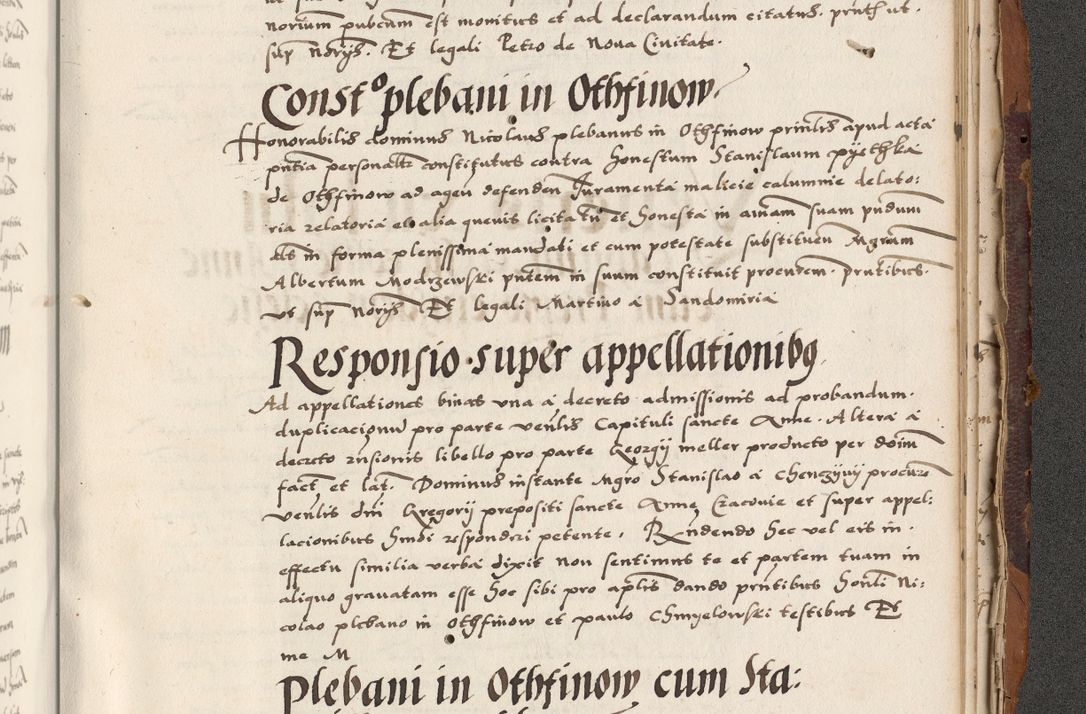 norium pubcum est monitus et ad declarandum citatus. prnth ut.
sup Norijs. Et legali Petro de Nova Civitate.
Const⁰ plebani in Othfinow.
Honorabilis dominus Nicolaus plebanus in Othfinow prinlis apud acta
pntia personalr constitutus contra honestum Stanislaum pyethka
de Othfinow ad agen defenden Juramenta malicie calumnie delato:
ria relatoria et alia quevis licita tn et honesta in animam suam pndum
in forma plenissima mandati et cum potestate substituen Mgrum
Albertum Modrzewski pntem in suum constituit procurem. prntibus.
ut sup Norijs Et legali Martino a Sandomiria
Responsio super appellationibus
Ad appellationes binas una a decreto admissionis ad probandum.
duplicacionum pro parte venlis Capituli sancte Anne. Altera a
decreto rnsionis libello pro parte Georgij meller producto per dnm
fact et lat. Dominus instante Mgro Stanislao a Chenczyny procure
venlis dni Gregorij prepositi sancte Anne Cracovie et super appel:
lacionibus hmdi responderi petente. Rndendo hec vel eis in
effectu similia verba dixit Non sentimus te et partem tuam in
aliquo gravatam esse hoc sibi pro aplis dando prntibus honli Ni:
colao plebano in Othfinow et paulo Chmyelowski testibus Et
me M
Plebani in Othfinow cum Sta: